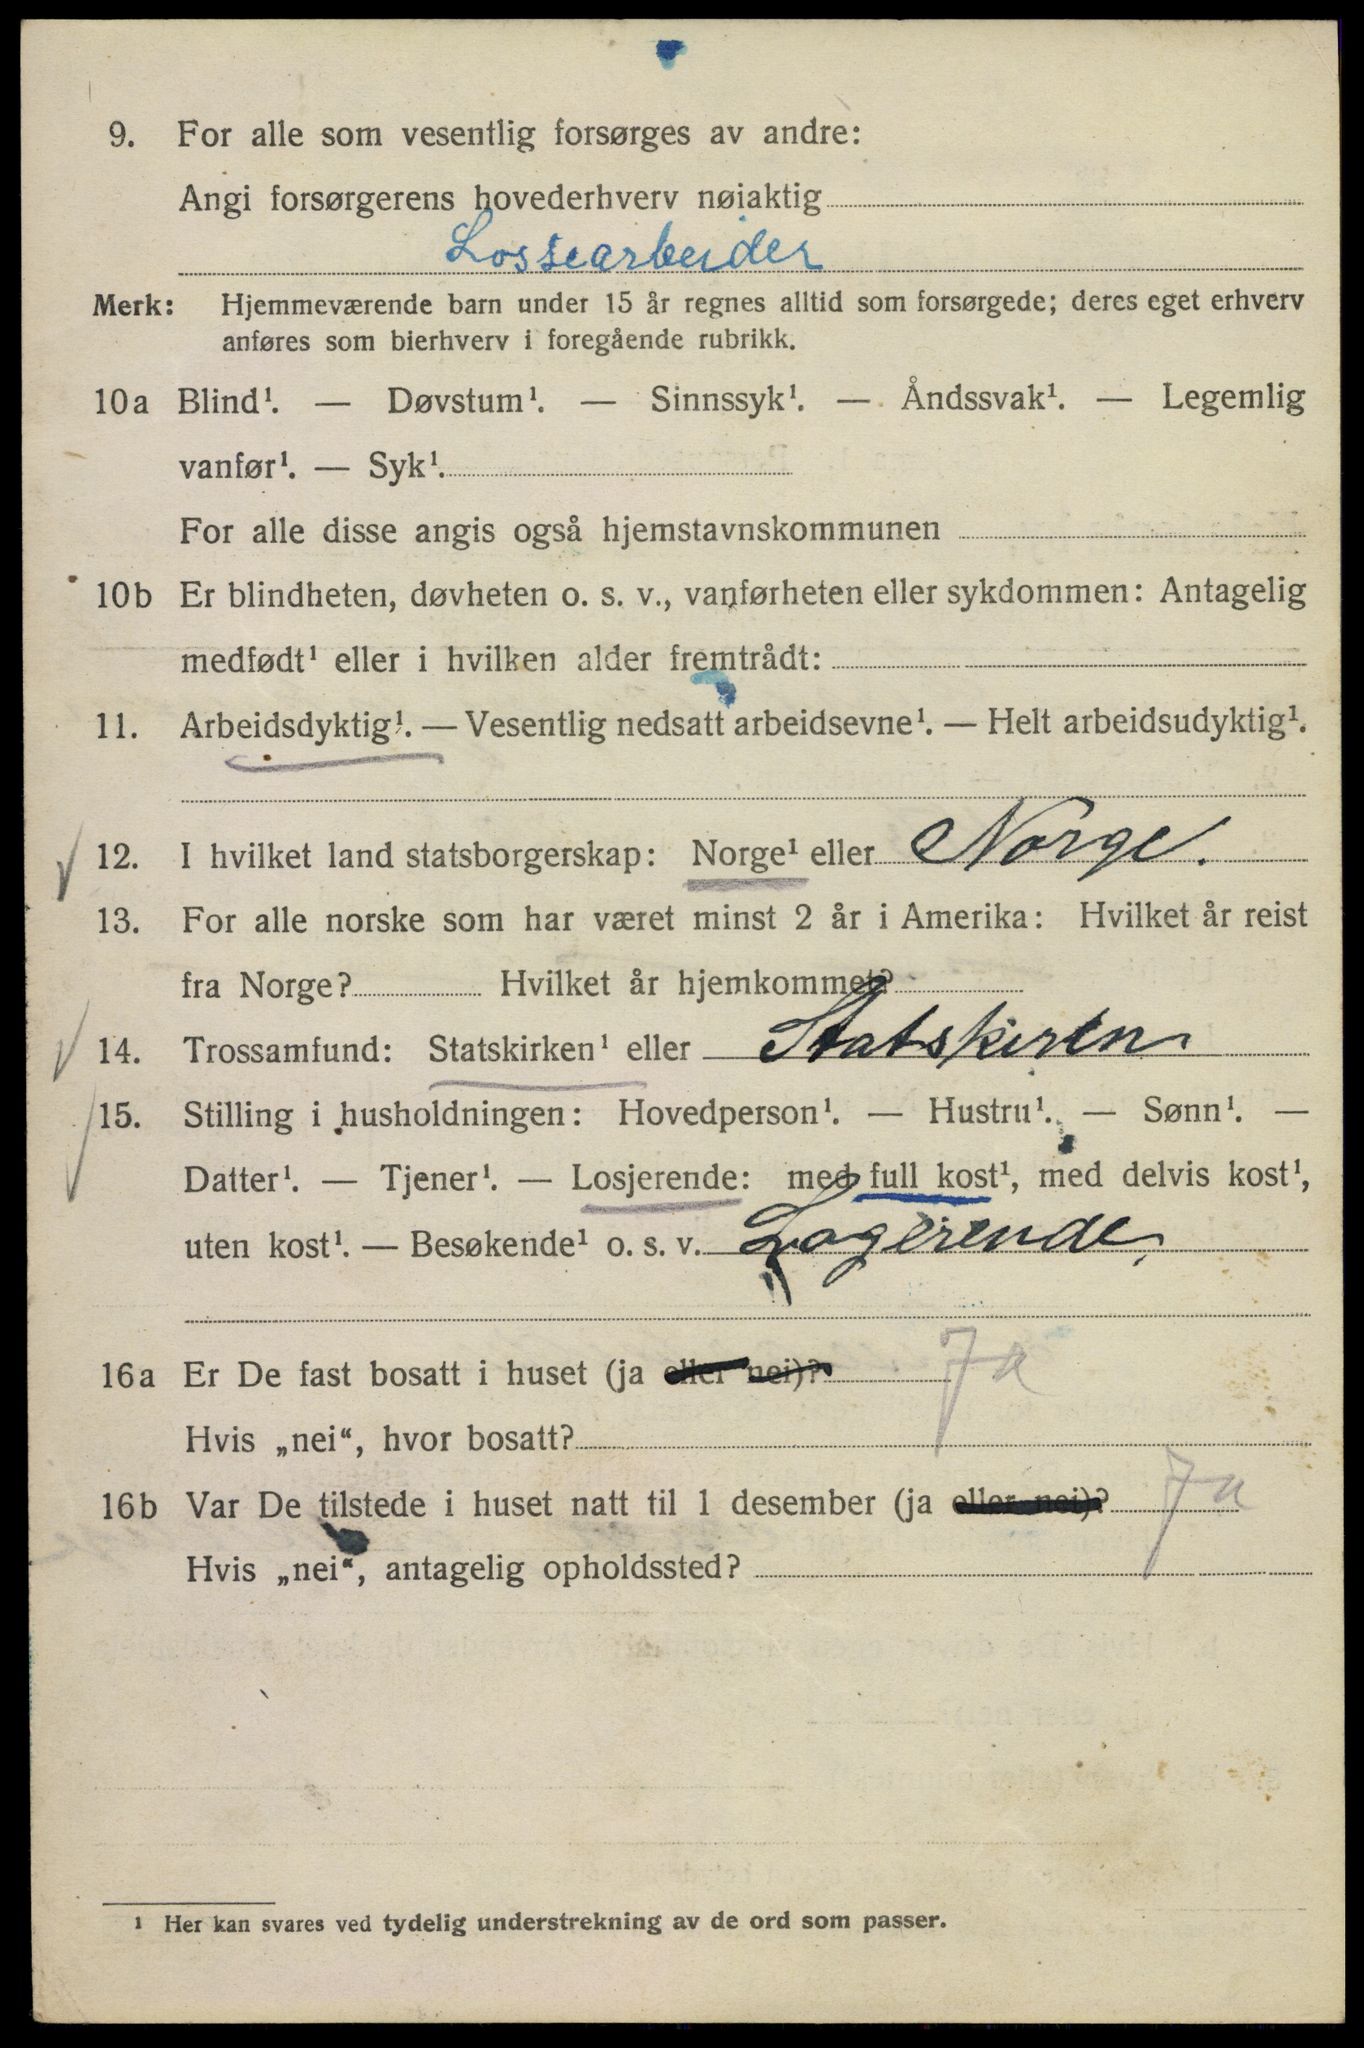 9. For alle som vesentlig forsørges av andre:
Angi forsørgerens hovederhverv nøiaktig
Lossearbeider
Merk: Hjemmeværende barn under 15 år regnes alltid som forsørgede; deres eget erhverv
anføres som bierhverv i foregående rubrikk.
10a Blind¹. — Døvstum¹. — Sinnssyk¹. — Åndssvak¹. — Legemlig
vanfør¹. — Syk¹.
For alle disse angis også hjemstavnskommunen
10b Er blindheten, døvheten o. s. v., vanførheten eller sykdommen: Antagelig
medfødt¹ eller i hvilken alder fremtrådt:
11. Arbeidsdyktig¹. — Vesentlig nedsatt arbeidsevne¹. — Helt arbeidsudyktig¹.
12. I hvilket land statsborgerskap: Norge¹ eller Norge.
13. For alle norske som har været minst 2 år i Amerika: Hvilket år reist
fra Norge? Hvilket år hjemkommet?
14. Trossamfund: Statskirken¹ eller Statskirken
15. Stilling i husholdningen: Hovedperson¹. — Hustru¹. — Sønn¹. —
Datter¹. — Tjener¹. — Losjerende: med full kost¹, med delvis kost¹,
uten kost¹. — Besøkende¹ o. s. v. Logerende.
16a Er De fast bosatt i huset (ja eller nei)? Ja
Hvis „nei“, hvor bosatt?
16b Var De tilstede i huset natt til 1 desember (ja eller nei)? Ja
Hvis „nei“, antagelig opholdssted?
¹ Her kan svares ved tydelig understrekning av de ord som passer.